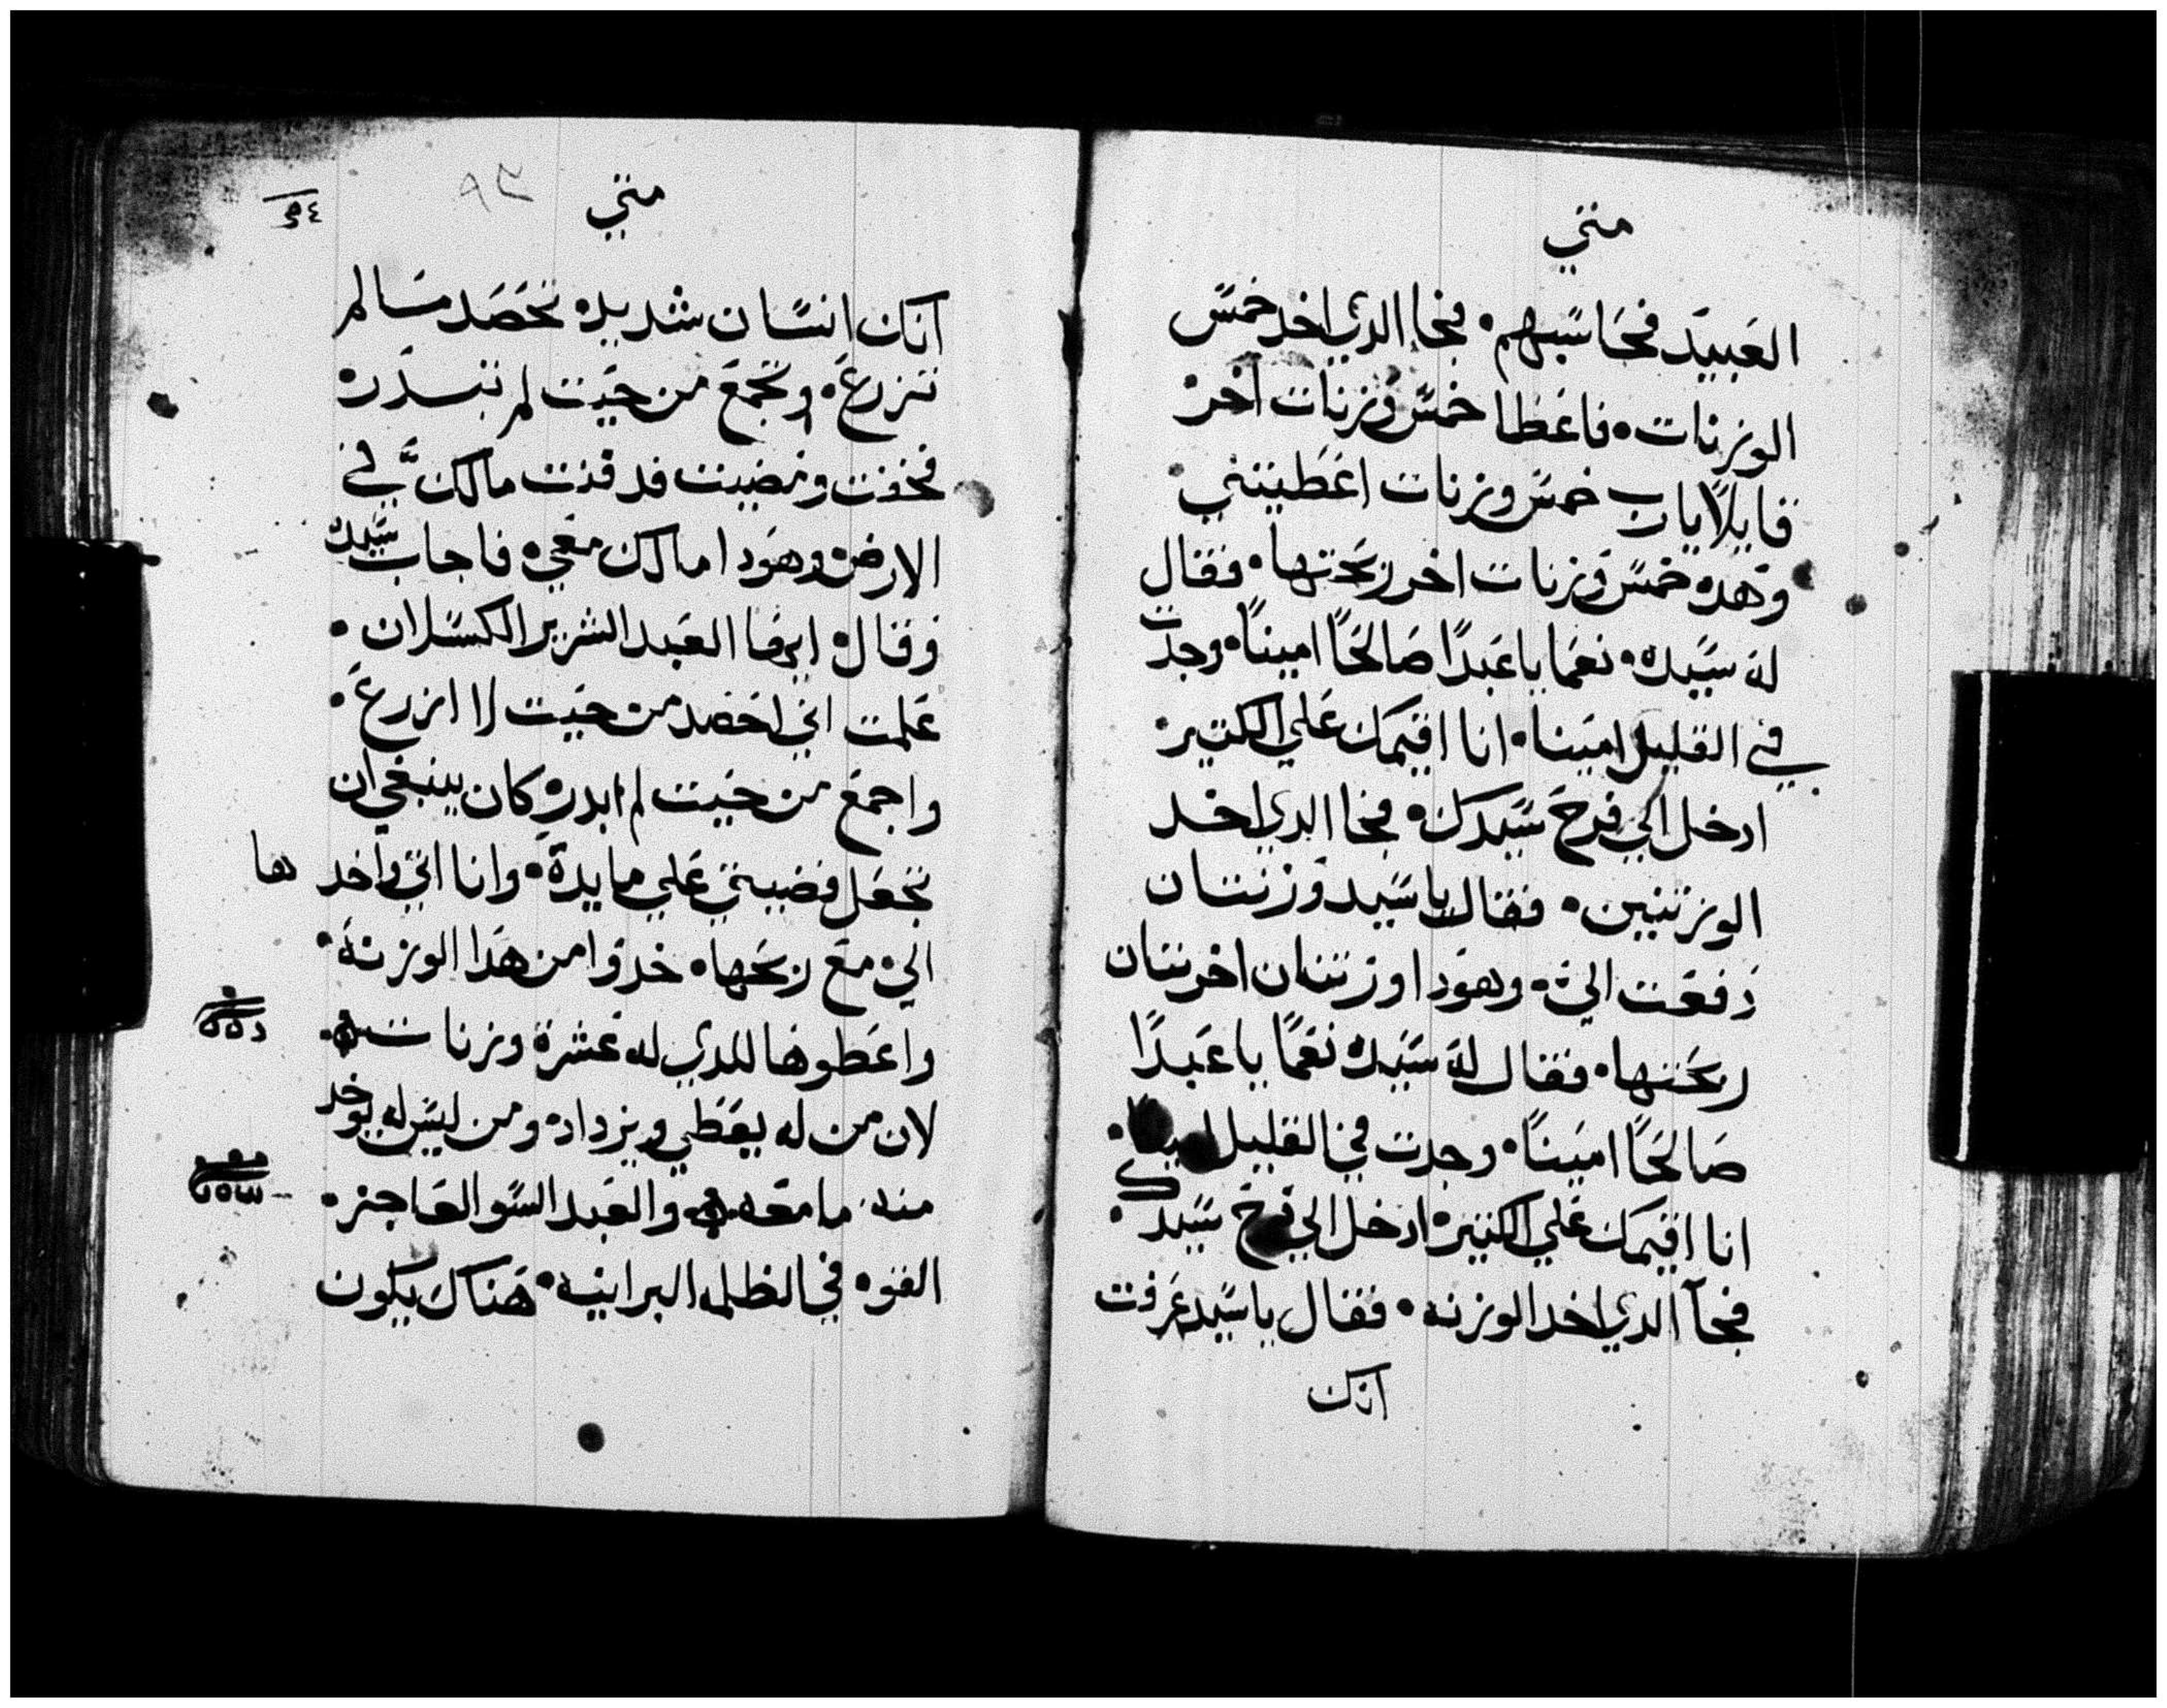 متي
العبيد فحاسبهم • فجا الدي اخد خمس
الوزنات • فاعطا خمس وزنات اخر •
قايلًا يا رب خمس وزنات اعطيتني •
وهده خمس وزنات اخر ربحتها • فقال
له سيده • نعما يا عبدًا صالحًا امينًا • وجدت
في القليل امينا • انا اقيمك علي الكتير •
ادخل الي فرح سيدك • فجا الدي اخد
الوزنتين • فقال يا سيد وزنتان
دفعت الي • وهودا وزنتان اخرتان
ربحتها • فقال له سيده نعمًا يا عبدًا
صالحًا امينًا • وجدت في القليل امينًا •
انا اقيمك علي الكتير • ادخل الي فرح سيدك •
فجآ الدي اخد الوزنه • فقال يا سيد عرفت
انك
متي
٩٣
انك انسان شديد • تحصد ما لم
تزرع • وتجمع من حيت لم تبدر •
فخفت ومضيت فدفنت مالك في
الارض • وهودا مالك معي • فاجاب سيده
وقال • ايها العبد الشرير الكسلان •
علمت اني احصد من حيت لا ازرع •
واجمع من حيت لم ابدر • كان ينبغي ان
تجعل فضيتي علي مايدة • وانا اتي واخدها
الي • مع ربحها • خدوا من هدا الوزنة •
واعطوها للدي له عشرة وزنات •
لان من له يعطي ويزداد • ومن ليس له يوخد
منه ما معه • والعبد السو العاجز •
القوه في الظلمه البرانيه • هناك يكون